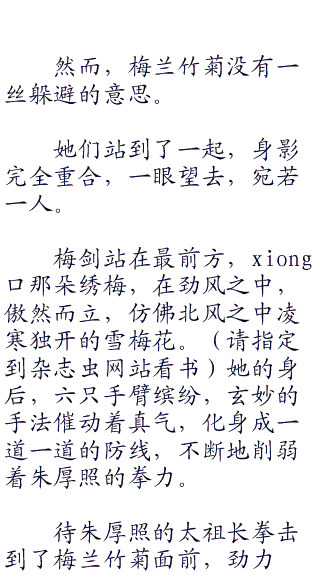 然而，梅兰竹菊没有一
丝躲避的意思。
她们站到了一起，身影
完全重合，一眼望去，宛若
一人。
梅剑站在最前方，xiong
口那朵绣梅，在劲风之中，
傲然而立，仿佛北风之中凌
寒独开的雪梅花。（请指定
到杂志虫网站看书）她的身
后，六只手臂缤纷，玄妙的
手法催动着真气，化身成一
道一道的防线，不断地削弱
着朱厚照的拳力。
待朱厚照的太祖长拳击
到了梅兰竹菊面前，劲力